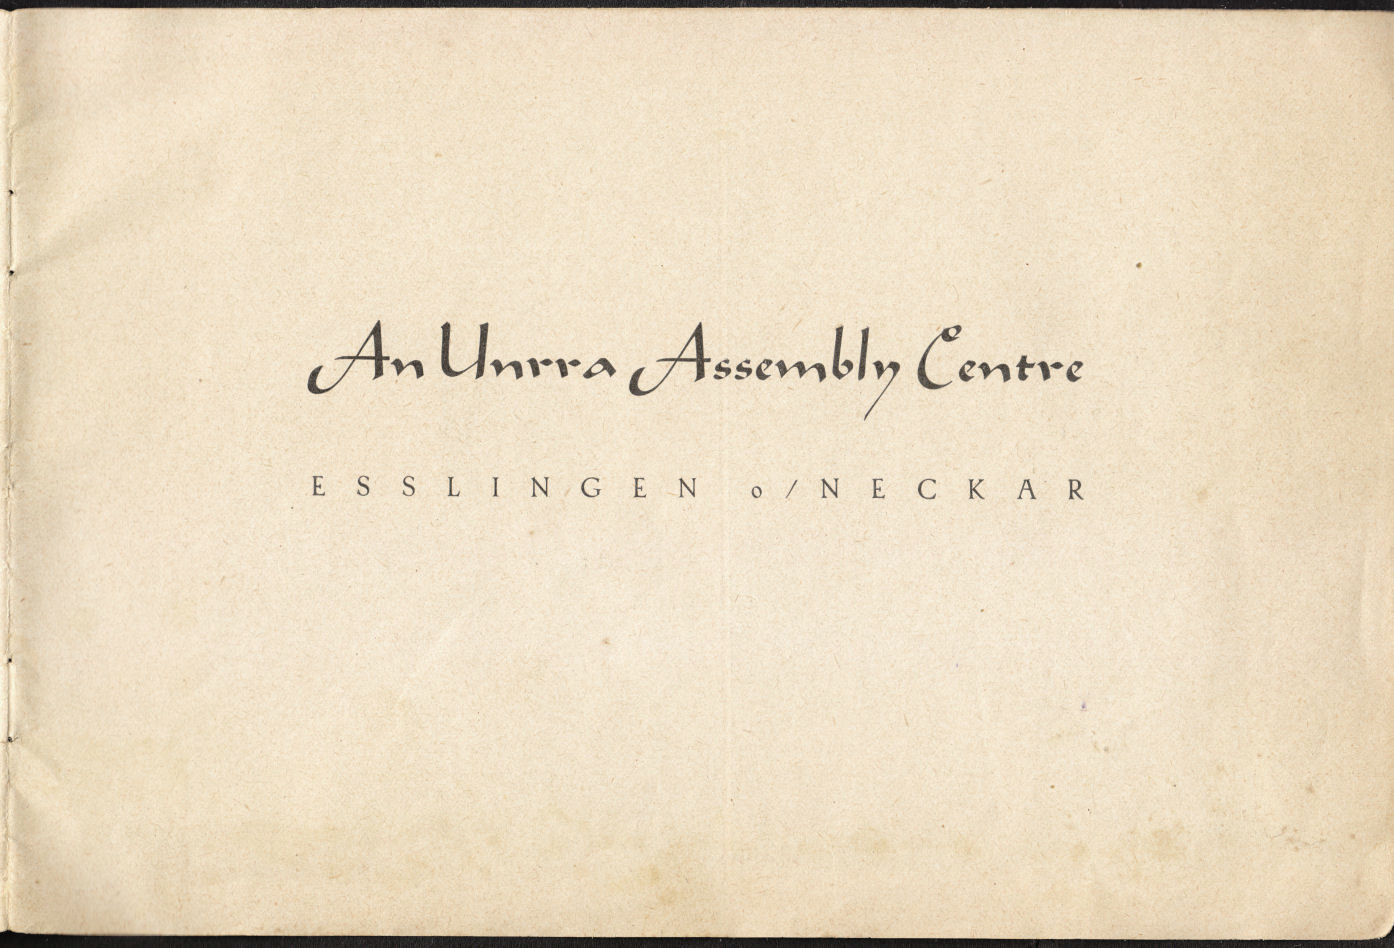 An Unrra Assembly Centre
ESSLINGEN o/NECKAR